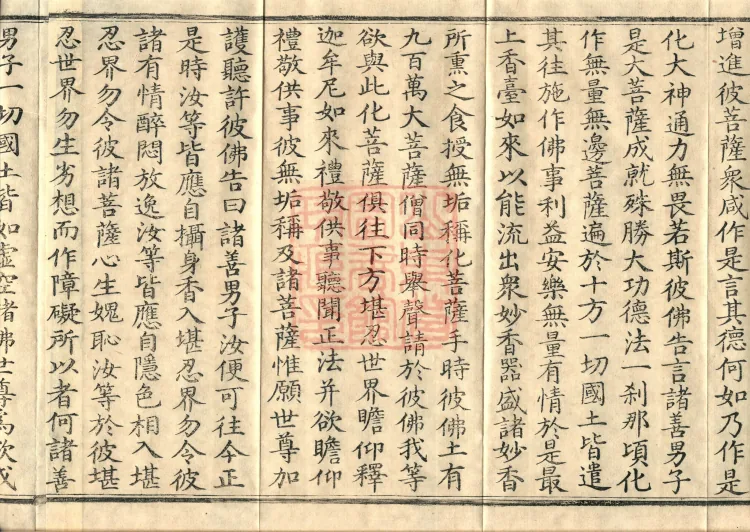 增進彼菩薩衆咸作是言其德何如乃作是
化大神通力無畏若斯彼佛告言諸善男子
是大菩薩成就殊勝大功德法一剎那頃化
作無量無邊菩薩遍於十方一切國土皆遣
其往施作佛事利益安樂無量有情於是最
上香臺如來以能流出衆妙香器盛諸妙香
所熏之食授無垢稱化菩薩手時彼佛土有
九百萬大菩薩僧同時舉聲請於彼佛我等
欲與此化菩薩俱往下方堪忍世界瞻仰釋
迦牟尼如來禮敬供事聽聞正法并欲瞻仰
禮敬供事彼無垢稱及諸菩薩惟願世尊加
護聽許彼佛告曰諸善男子汝便可往今正
是時汝等皆應自攝身香入堪忍界勿令彼
諸有情醉悶放逸汝等皆應自隱色相入堪
忍界勿令彼諸菩薩心生媿恥汝等於彼堪
忍世界勿生劣想而作障礙所以者何諸善
男子一切國土皆如虛空諸佛世尊爲欲成